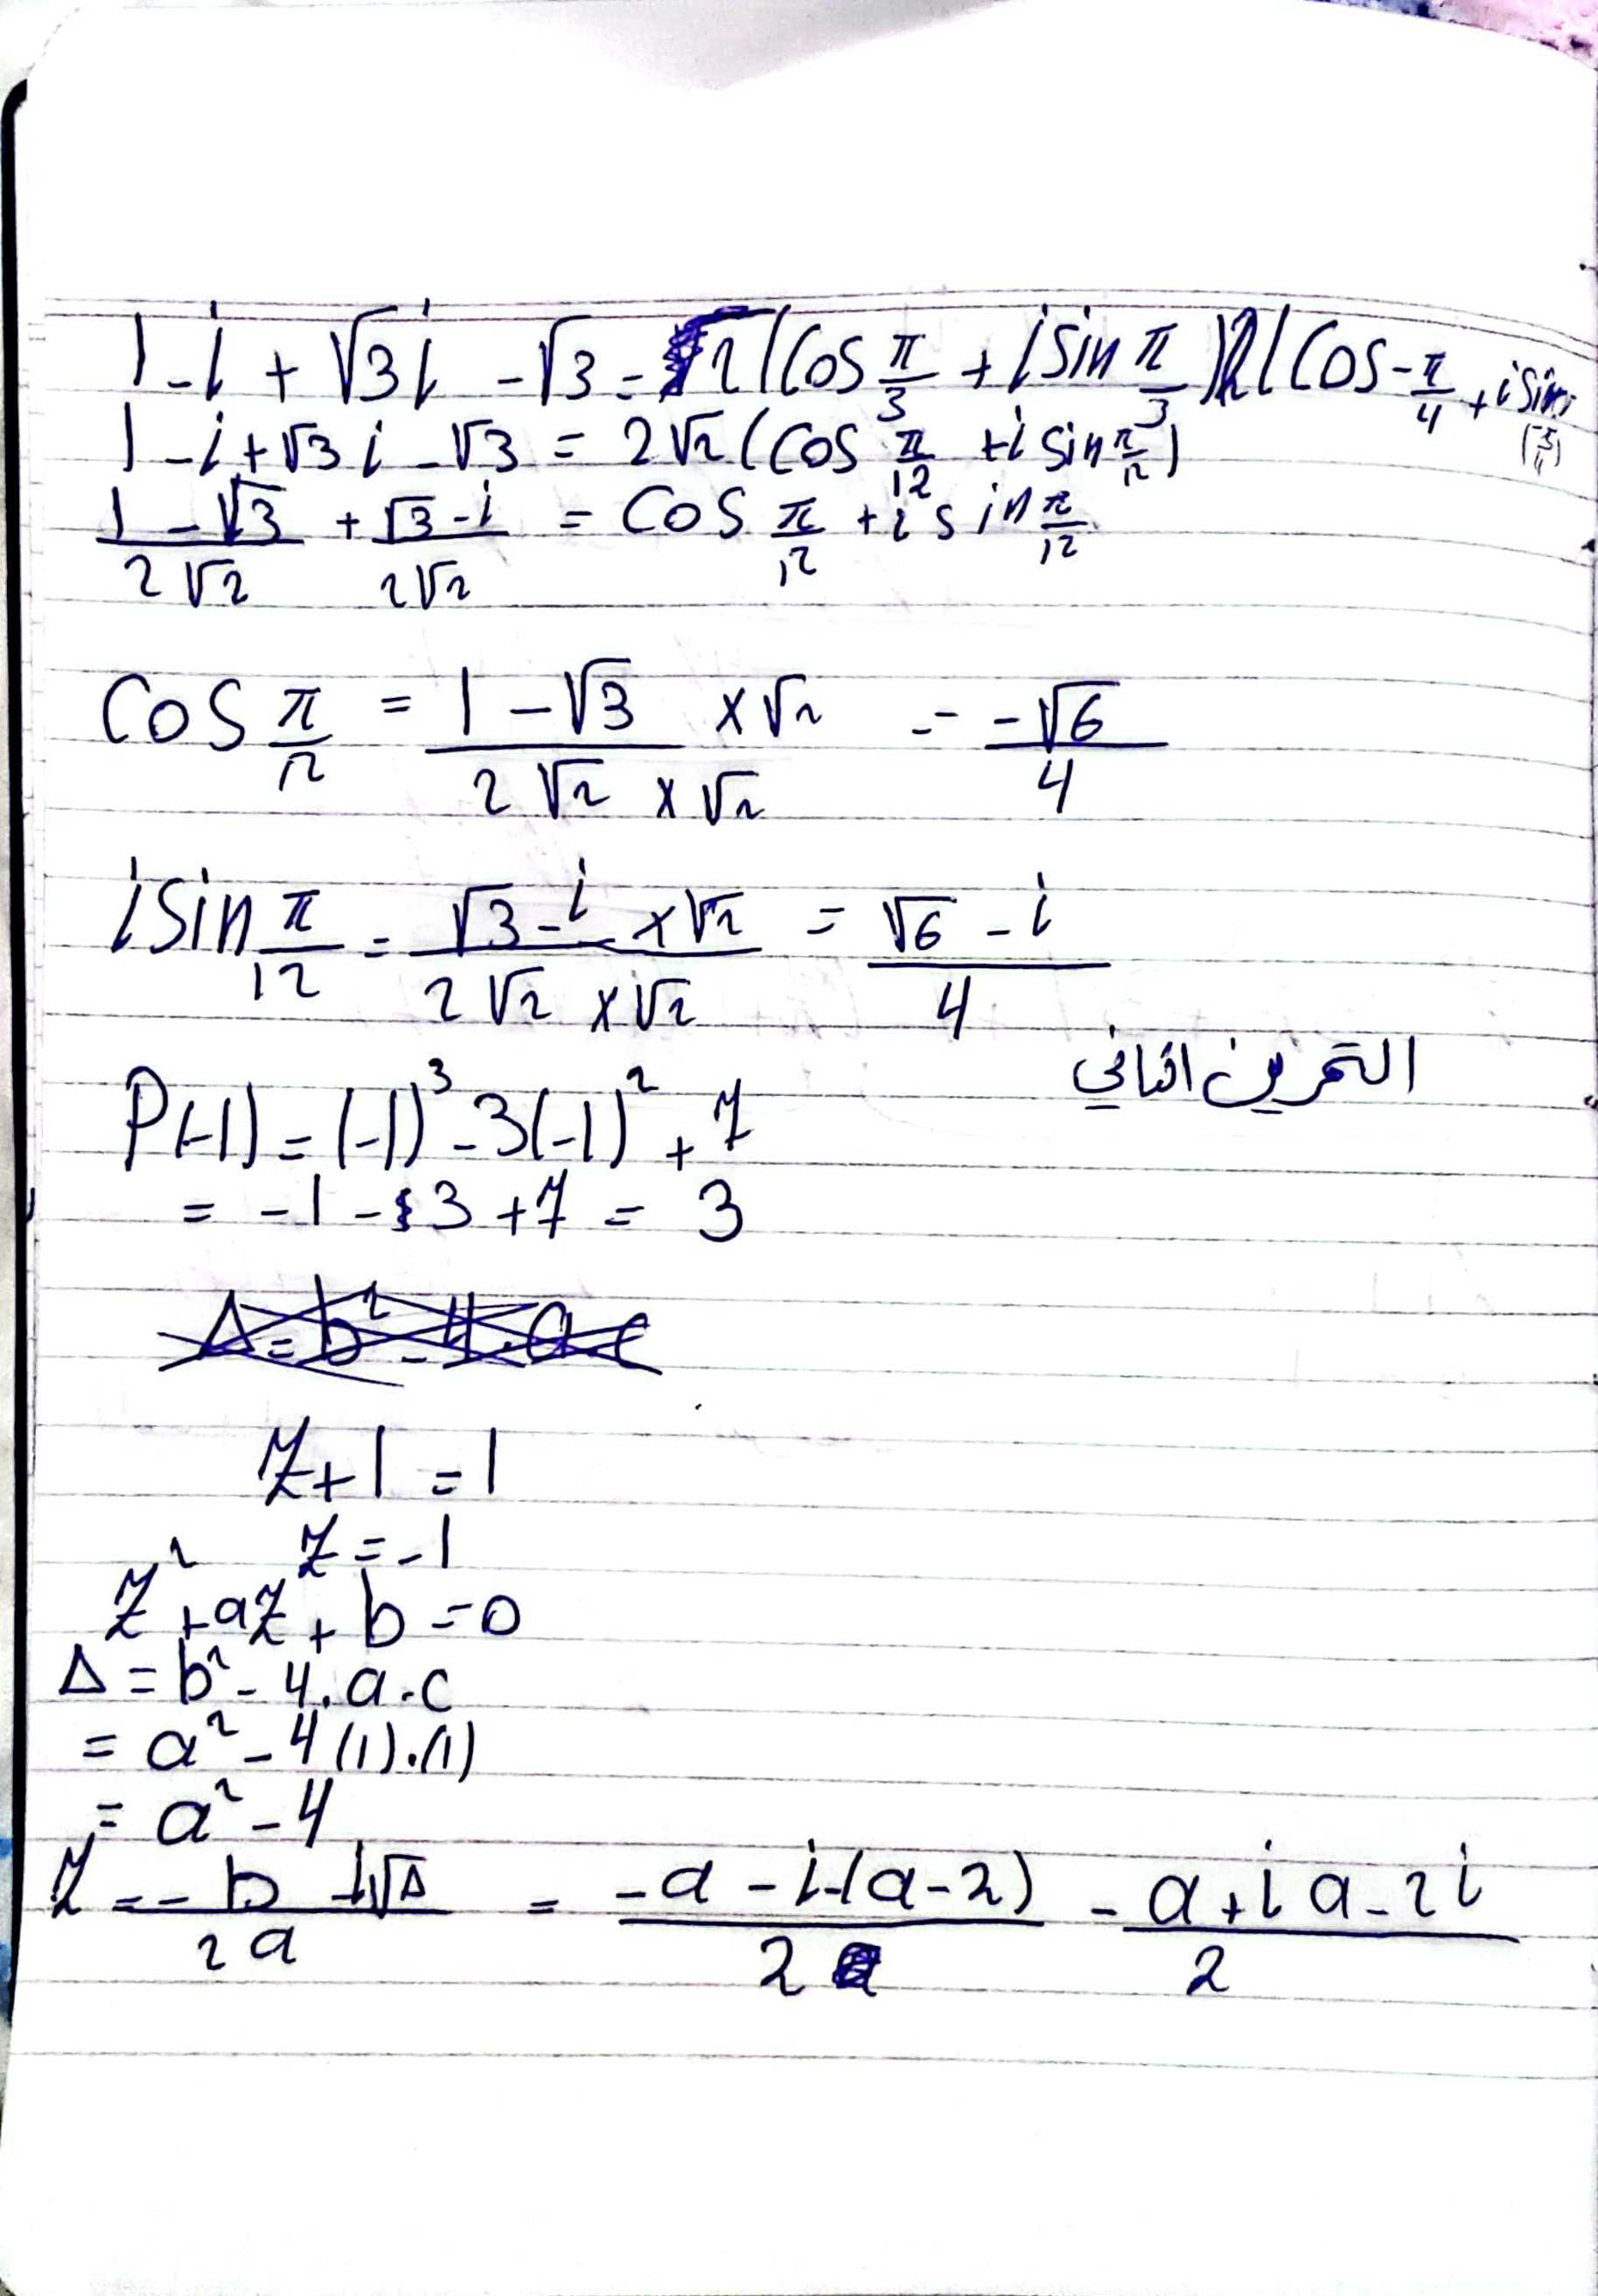 1 - i + √3 i - √3 = √2 (cos π/3 + i sin π/3) 2 (cos - π/4 + i sin
1 - i + √3 i - √3 = 2√2 (cos π/12 + i sin π/12)
(1 - √3)/(2√2) + (√3 - i)/(2√2) = cos π/12 + i sin π/12
cos π/12 = (1 - √3 × √2)/(2√2 × √2) = -√6/4
i sin π/12 = (√3 - i × √2)/(2√2 × √2) = (√6 - i)/4
التمرين الثاني
P(-1) = (-1)³ - 3(-1)² + 7
= -1 - 3 + 7 = 3
Δ = b² - 4.a.c
Z + 1 = 1
Z = -1
Z² + aZ + b = 0
Δ = b² - 4.a.c
= a² - 4(1).(1)
= a² - 4
Z = (-b - i√Δ)/(2a) = (-a - i-(a - 2))/2 - (a + ia - 2i)/2